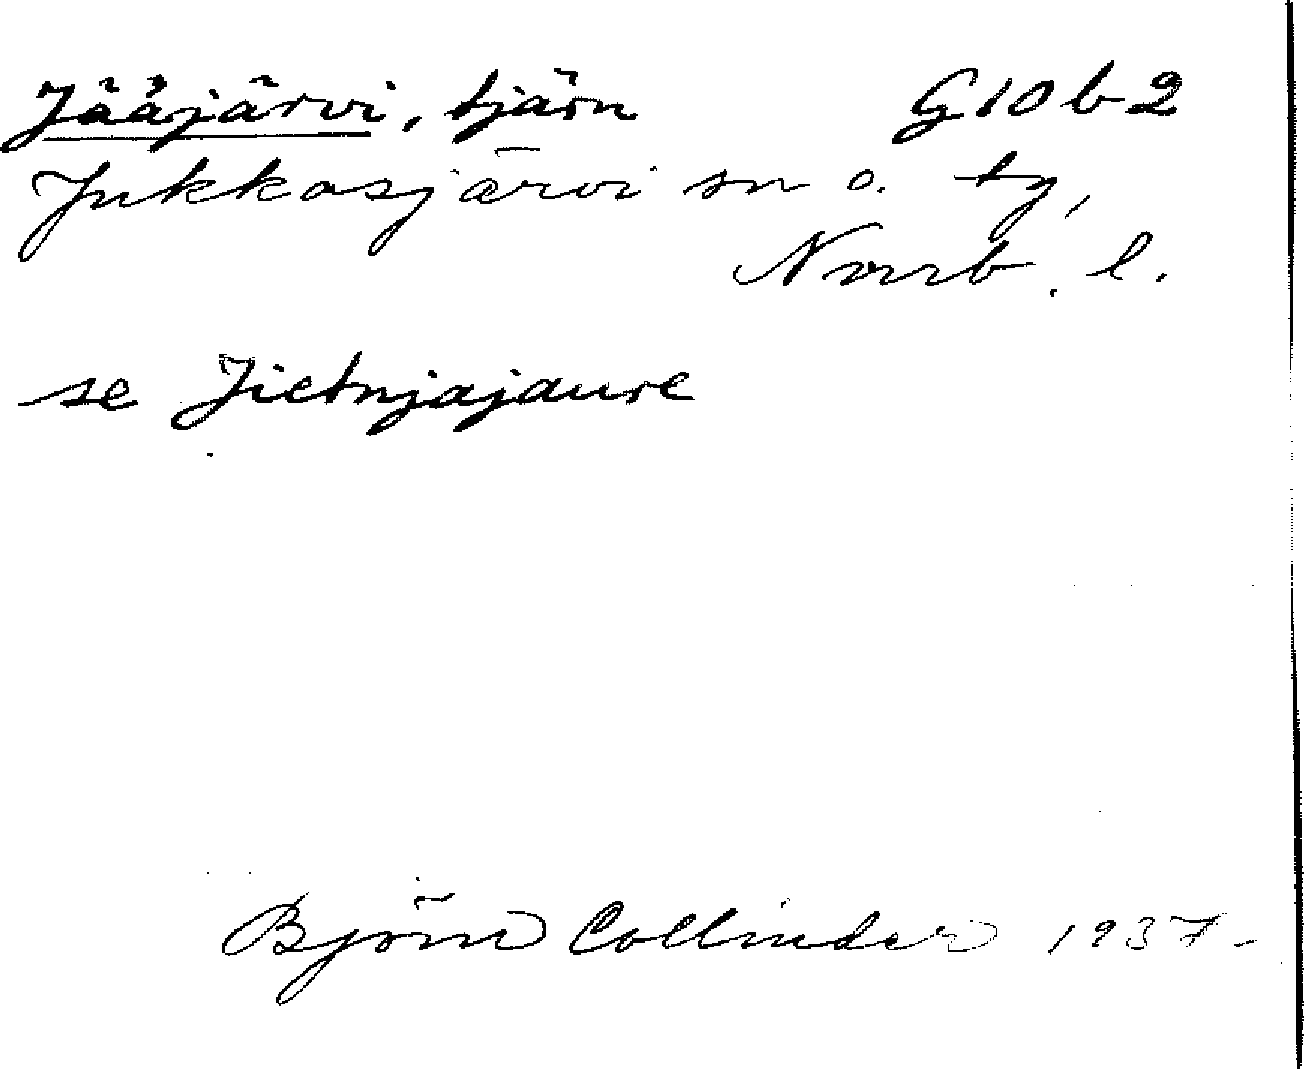 Jääjärvi, tjärn G10b2
Jukkasjärvi sn o. tg,
Norrb. l.
se Jietnjajaure
Björn Collinder 1937-